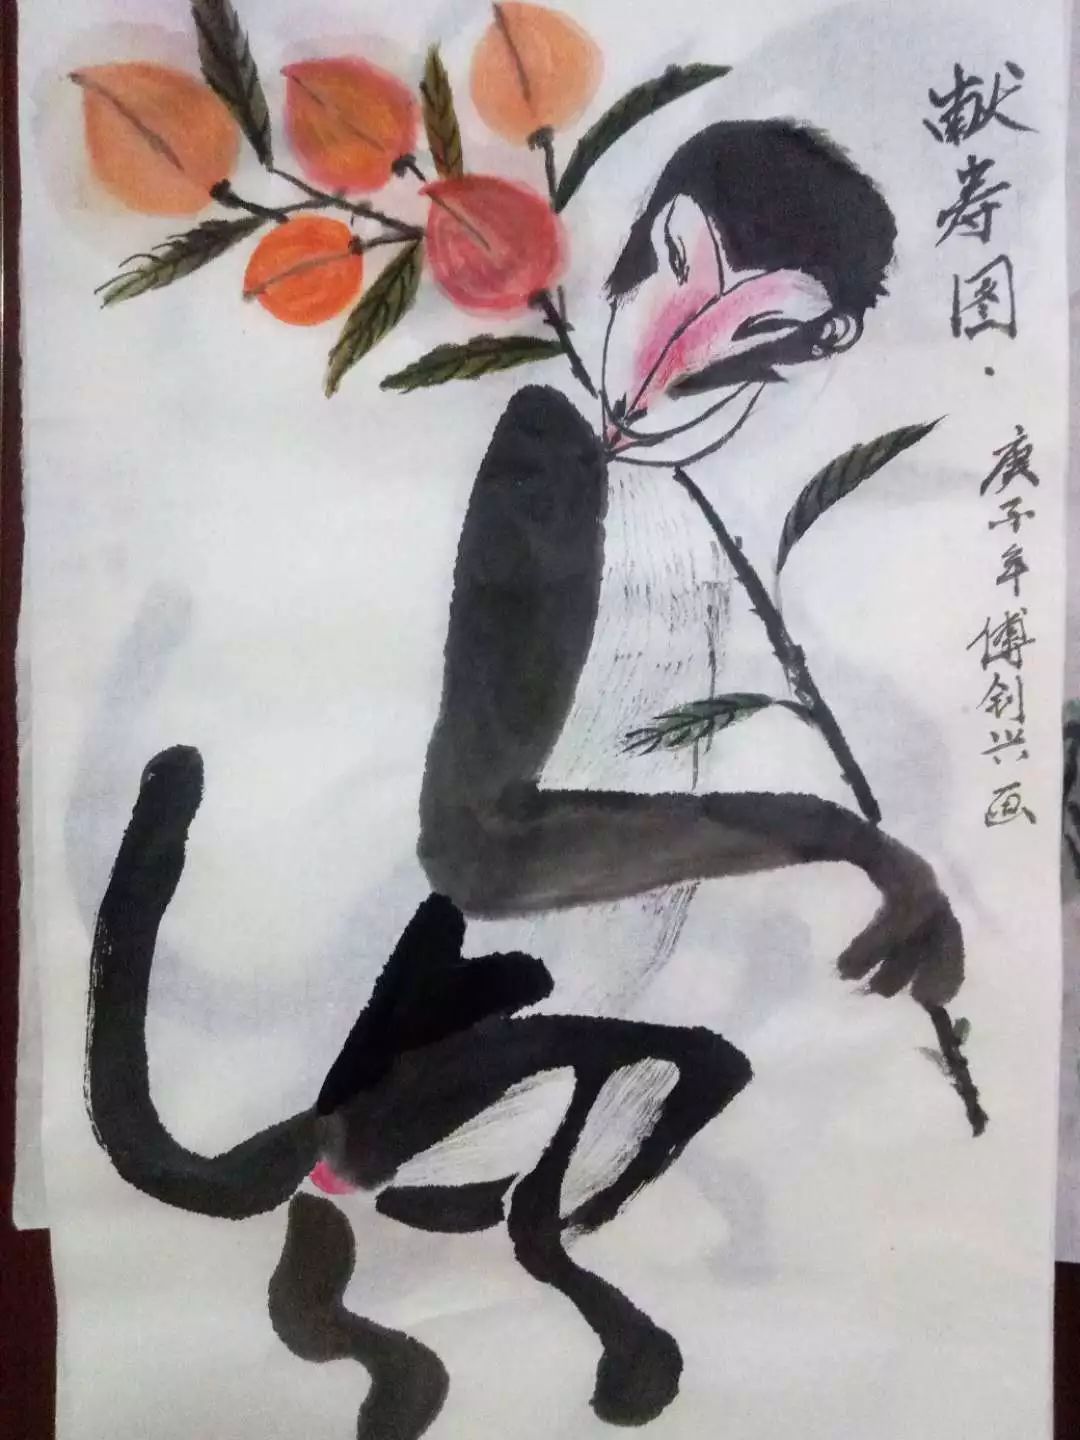 献寿图.
庚子年傅钊兴画